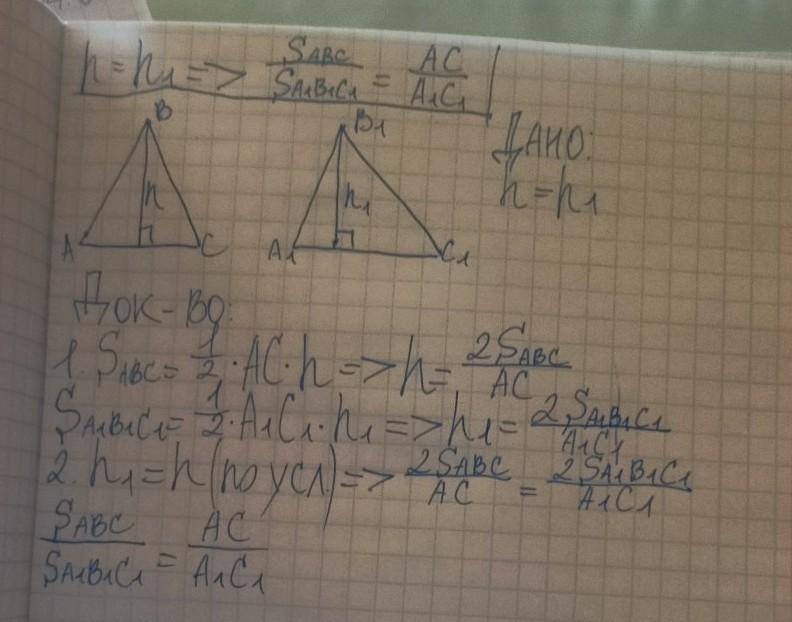 h = h₁ => S_ABC / S_A₁B₁C₁ = AC / A₁C₁
B
B₁
ДАНО:
h = h₁
h
h₁
A
C
A₁
C₁
ДОК-ВО:
1. S_ABC = 1/2 · AC · h => h = 2S_ABC / AC
S_A₁B₁C₁ = 1/2 · A₁C₁ · h₁ => h₁ = 2S_A₁B₁C₁ / A₁C₁
2. h₁ = h (по усл) => 2S_ABC / AC = 2S_A₁B₁C₁ / A₁C₁
S_ABC / S_A₁B₁C₁ = AC / A₁C₁